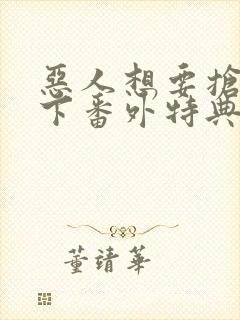 惡人想要搶
下番外特典
董靖華